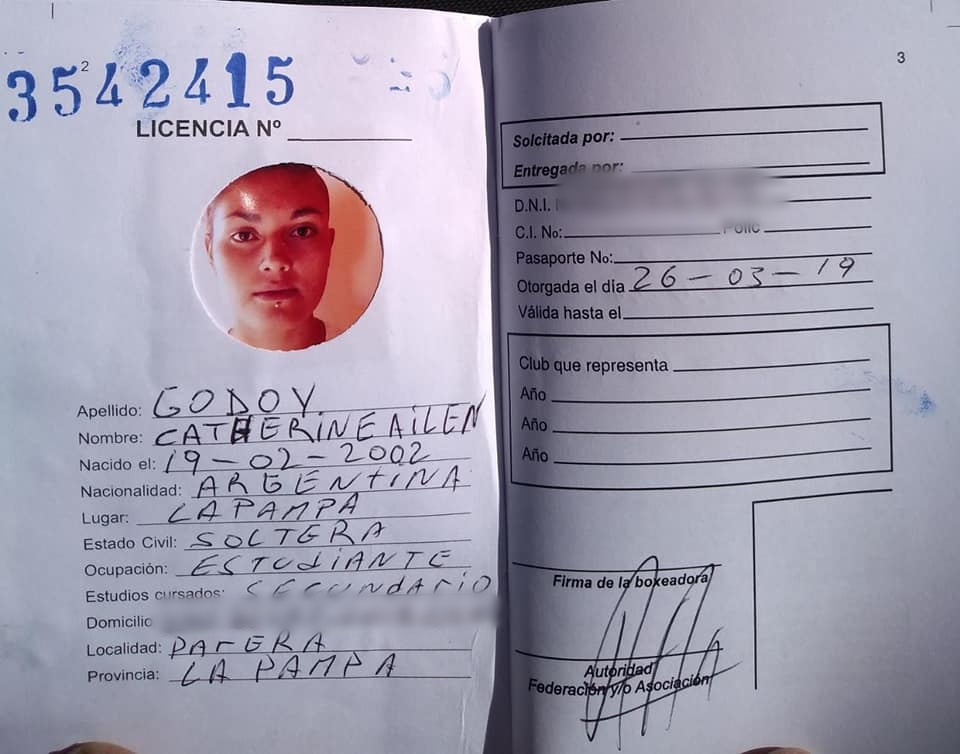 3542415
2
LICENCIA Nº
Apellido: GODOY.
Nombre: CATHERINE AILEN
Nacido el: 19-02-2002
Nacionalidad: ARGENTINA
Lugar: LA PAMPA
Estado Civil: SOLTERA
Ocupación: ESTUDIANTE
Estudios cursados: SECUNDARIO
Domicilio
Localidad: PARERA
Provincia: LA PAMPA
3
Solcitada por:
Entregada por:
D.N.I.
C.I. No: Polic
Pasaporte No:
Otorgada el día 26-03-19
Válida hasta el
Club que representa
Año
Año
Año
Firma de la boxeadora
Autoridad
Federación y/o Asociación